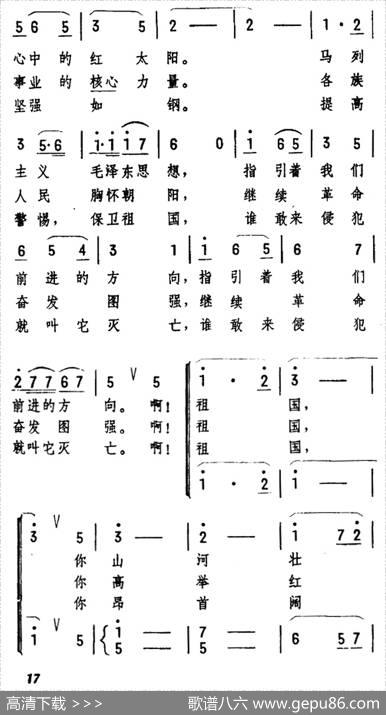 5 6 5 | 3 5 | 2 — | 2 — | 1 · 2
心中的 红 太 阳。 马列
事业的 核心 力 量。 各族
坚强 如 钢。 提高
3 5·6 | 1 1 1 7 | 6 0 | 1 6 5 | 3 5
主义 毛泽东思 想, 指引着 我们
人民 胸怀朝 阳, 继续 革命
警惕, 保卫祖 国, 谁敢来 侵犯
6 5 4 | 3 1 | 1 6 5 | 6 7
前进的 方 向,指引着 我们
奋发 图 强,继续 革命
就叫它灭 亡,谁敢来侵 犯
2 7 7 6 7 | 5 V 5 | 1 · 2 | 3 —
前进的方 向。啊! 祖 国,
奋发 图 强。啊! 祖 国,
就叫它灭 亡。啊! 祖 国,
1 · 2 | 1 —
3 V 5 | 5 3 — | 2 — | 1 7 2
你 山 河 壮
你 高 举 红
你 昂 首 阔
1 V 5 | 1 5 — | 7 5 — | 6 5 7
17
高清下载 >>>
歌谱八六 www.gepu86.com